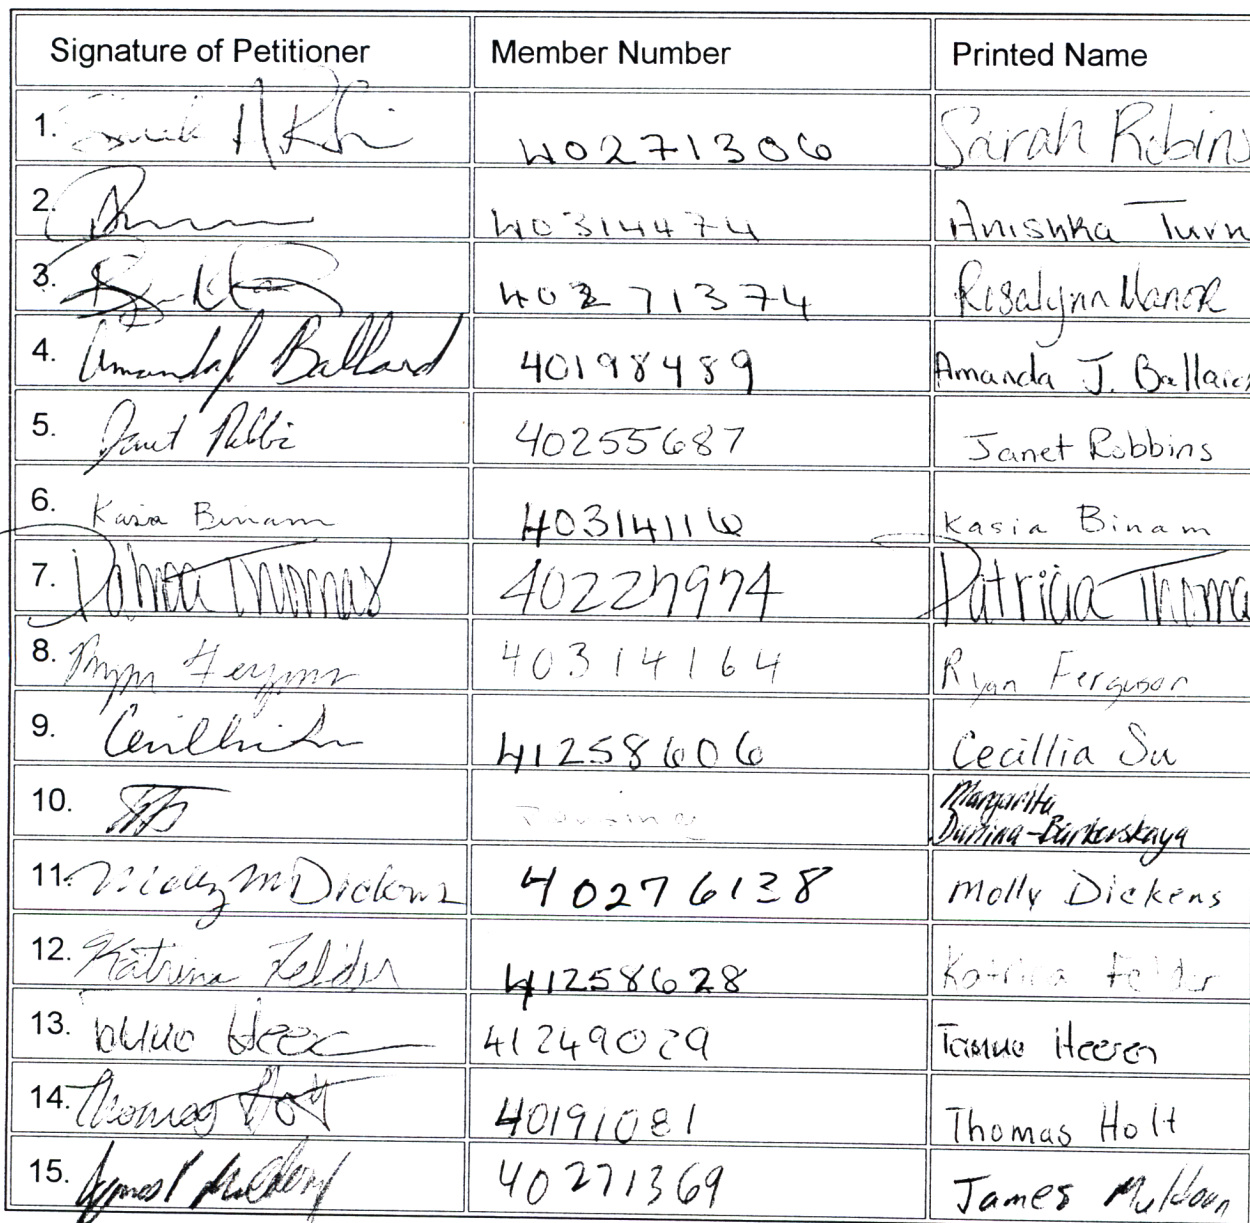 Signature of Petitioner Member Number Printed Name
1. 40271306 Sarah Robins
2. 40314474 Anishka Turn
3. 40271374 Rosalynn Manor
4. Amanda J Ballard 40198489 Amanda J. Ballard
5. Janet Robbi 40255687 Janet Robbins
6. Kasia Binam 40314116 Kasia Binam
7. Patricia Thomas 40227974 Patricia Thoma
8. Ryan Ferguson 40314164 Ryan Ferguson
9. 41258606 Cecillia Su
10. Margarita
Durina-Barkerskaya
11. Molly M Dickens 40276138 Molly Dickens
12. Katrina Felder 41258628 Katrina Felder
13. Heer 41249029 Heeren
14. Thomas Holt 40191081 Thomas Holt
15. James Muldoon 40271369 James Muldoon